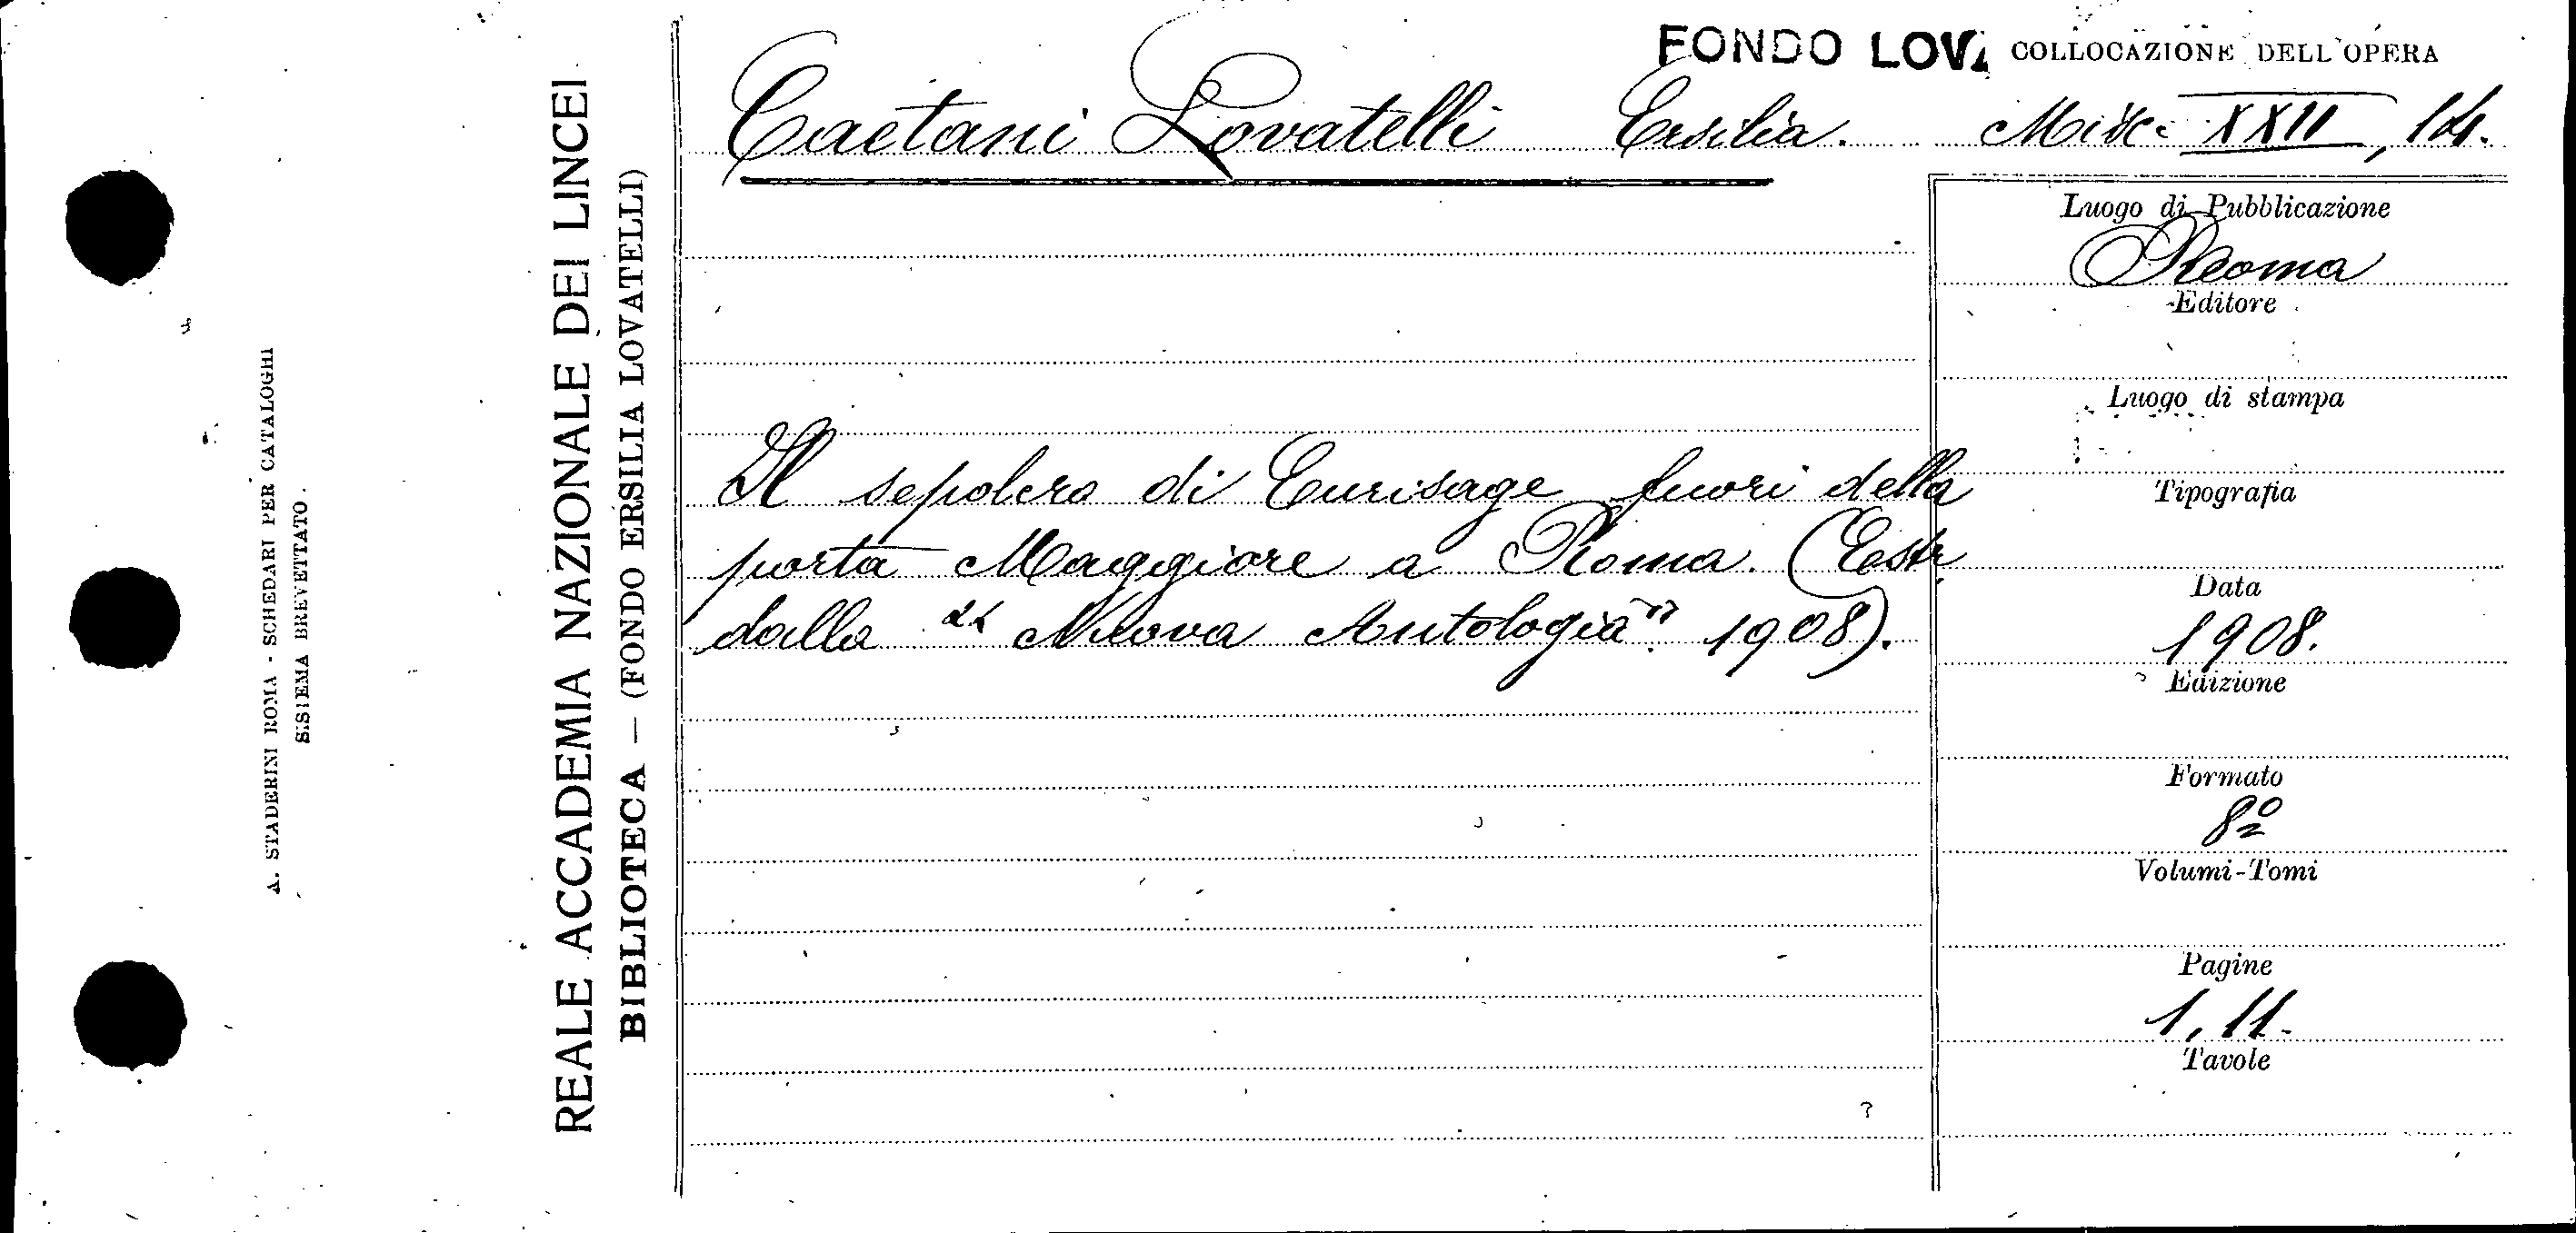 A. STADERINI ROMA - SCHEDARI PER CATALOGHI
SISTEMA BREVETTATO.
REALE ACCADEMIA NAZIONALE DEI LINCEI
BIBLIOTECA — (FONDO ERSILIA LOVATELLI)
FONDO LOVA
COLLOCAZIONE DELL'OPERA
Caetani Lovatelli Ersilia. Misc. XXII, 14.
Il sepolcro di Eurisage fuori della
porta Maggiore a Roma. (Estr.
dalla "Nuova Antologia" 1908).
Luogo di Pubblicazione
Roma
Editore
Luogo di stampa
Tipografia
Data
1908.
Edizione
Formato
8º
Volumi-Tomi
Pagine
1, 11.
Tavole